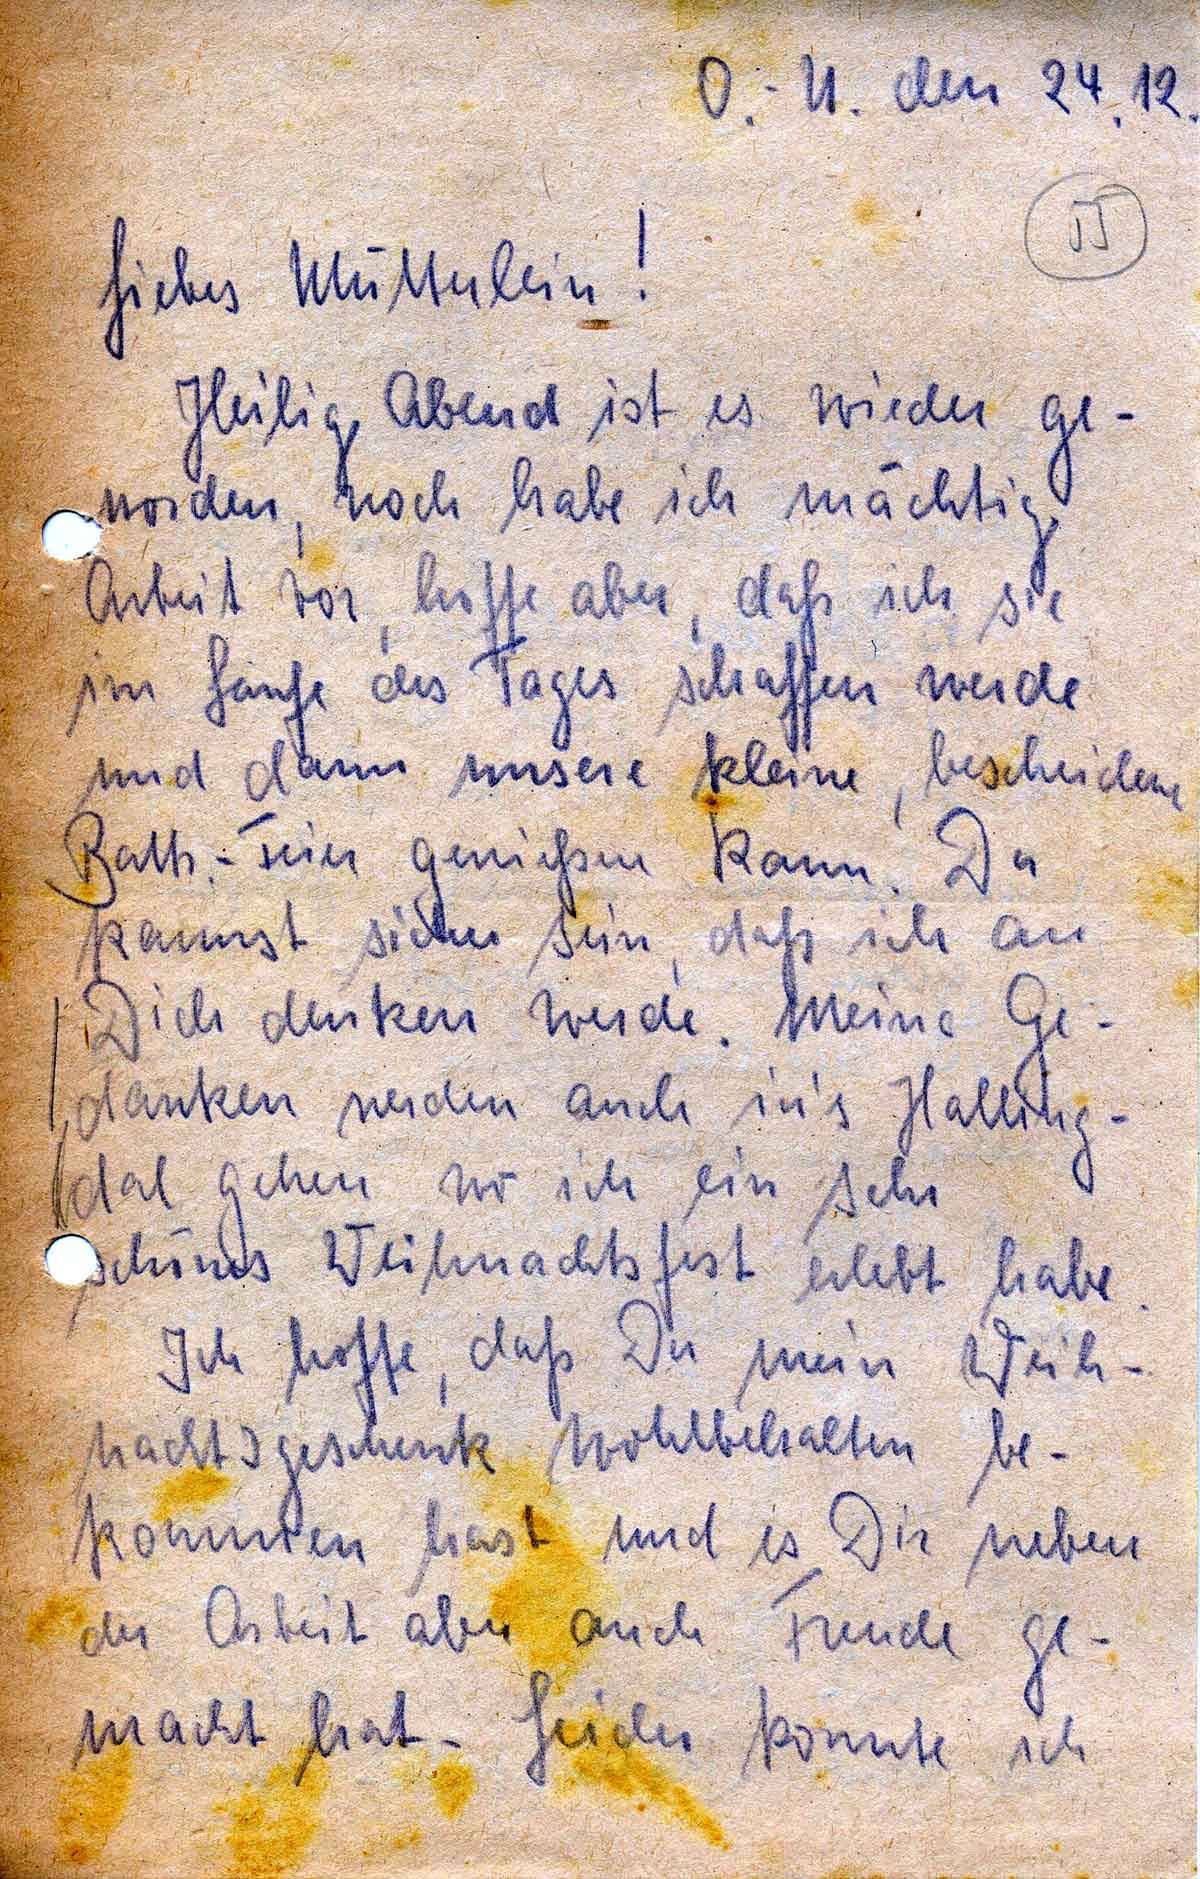 O.-U. den 24.12.
15
Liebes Mütterlein!
Heilig Abend ist es wieder ge-
worden, noch habe ich mächtig
Arbeit vor, hoffe aber, daß ich sie
im Laufe des Tages schaffen werde
und dann unsere kleine, bescheidene
Battr.-Feier genießen kann. Du
kannst sicher sein, daß ich an
Dich denken werde. Meine Ge-
danken werden auch in's Halling-
dal gehen wo ich ein sehr
schönes Weihnachtsfest erlebt habe.
Ich hoffe, daß Du mein Weih-
nachtsgeschenk wohlbehalten be-
kommen hast und es Dir neben
der Arbeit aber auch Freude ge-
macht hat. Leider konnte ich